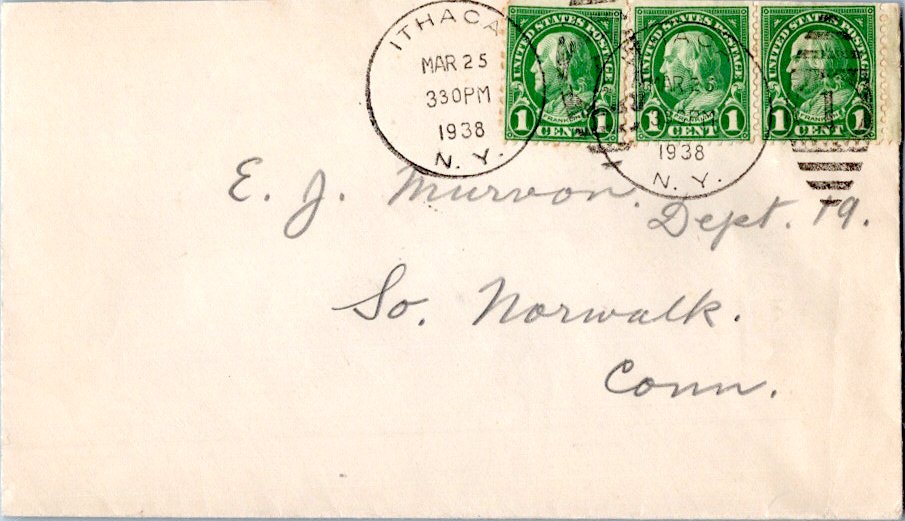 ITHACA
MAR 25
330PM
1938
N. Y.
UNITED STATES POSTAGE
FRANKLIN
1 CENT 1
UNITED STATES POSTAGE
FRANKLIN
1 CENT 1
UNITED STATES POSTAGE
FRANKLIN
1 CENT 1
MAR 25
1938
N. Y.
E. J. Murvon.
Dept. 19.
So. Norwalk.
Conn.